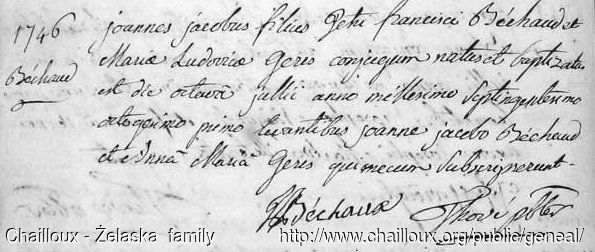 1746
Béchaud
joannes jacobus filius Petri francisci Béchaud et
Mariæ Ludovicæ Geris conjugum natus et baptizatus
est die octavâ jullii anno millesimo septingentesimo
octogesimo primo levantibus joanne jacobô Béchaud
et Annâ Mariâ Geris qui mecum subscripserunt -
Béchaux
Chailloux - Żelaska family http://www.chailloux.org/public/geneal/